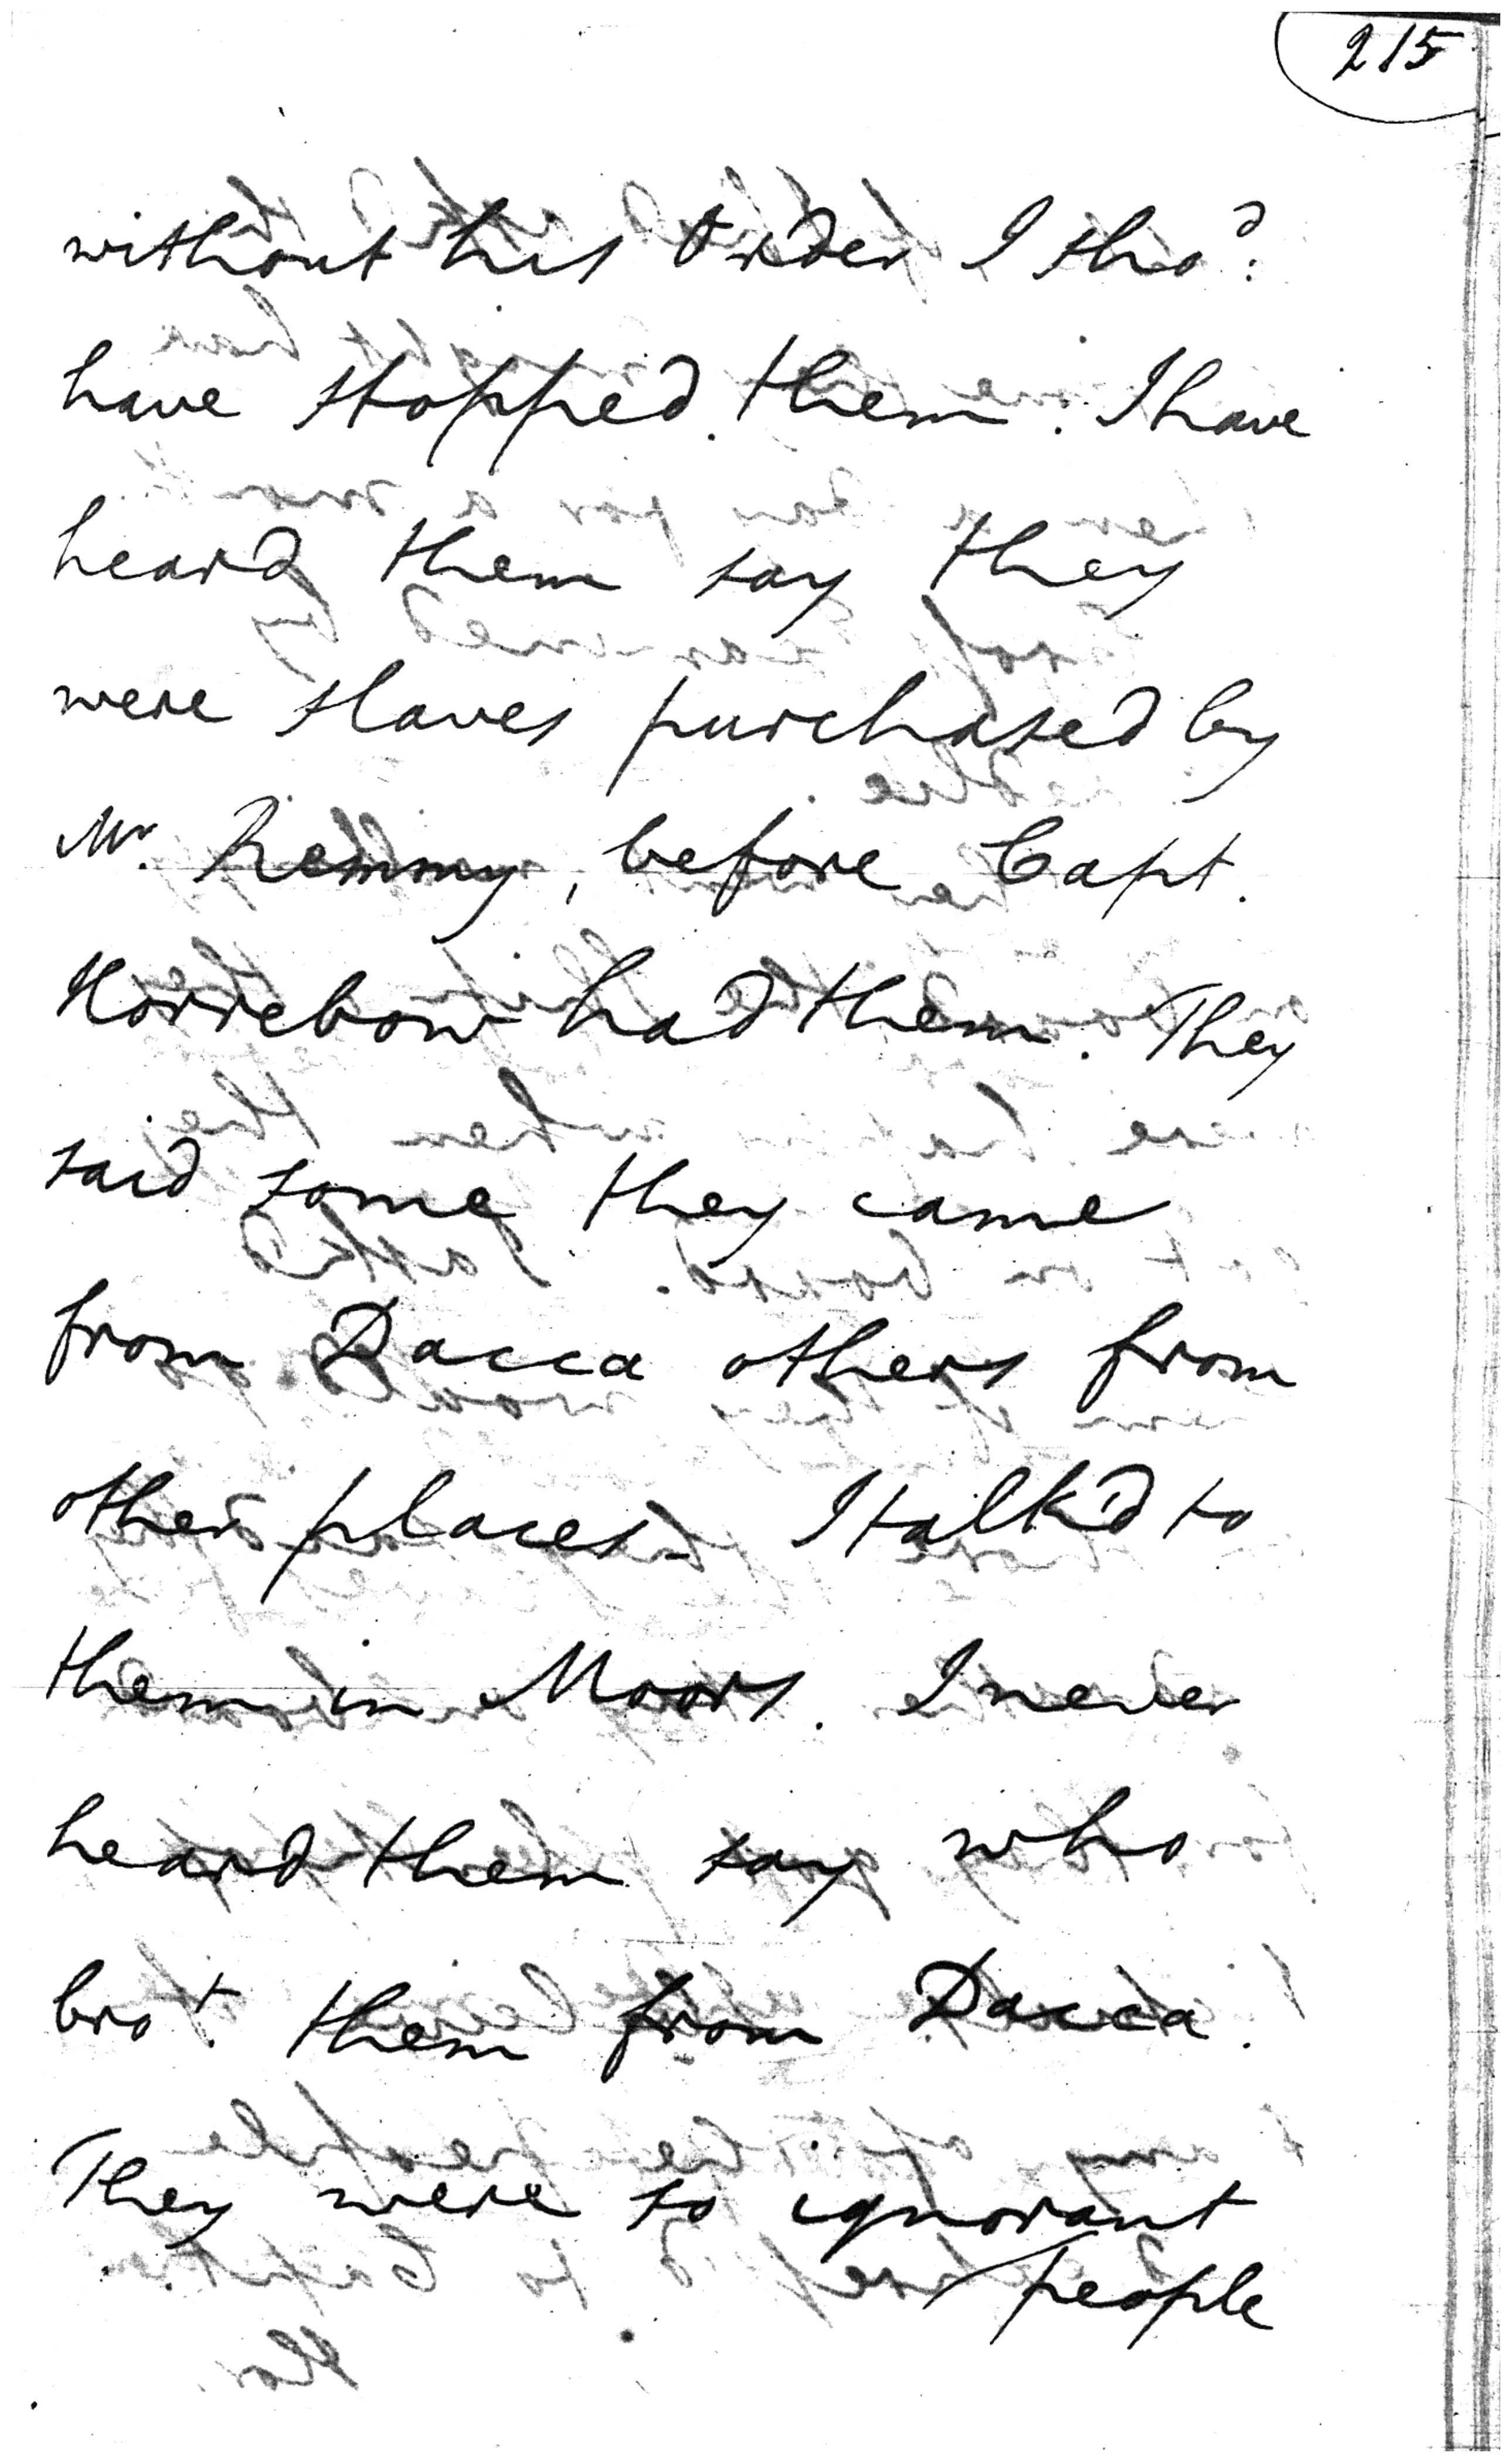 215
without his Order I sho.d
have stopped them. I have
heard them say they
were slaves purchased by
Mr. Remmy, before Capt.
Horrebow had them. They
said some they came
from Dacca others from
other places. I talk'd to
them in Moors. I never
heard them say who
bro.t them from Dacca.
They were so ignorant
/people